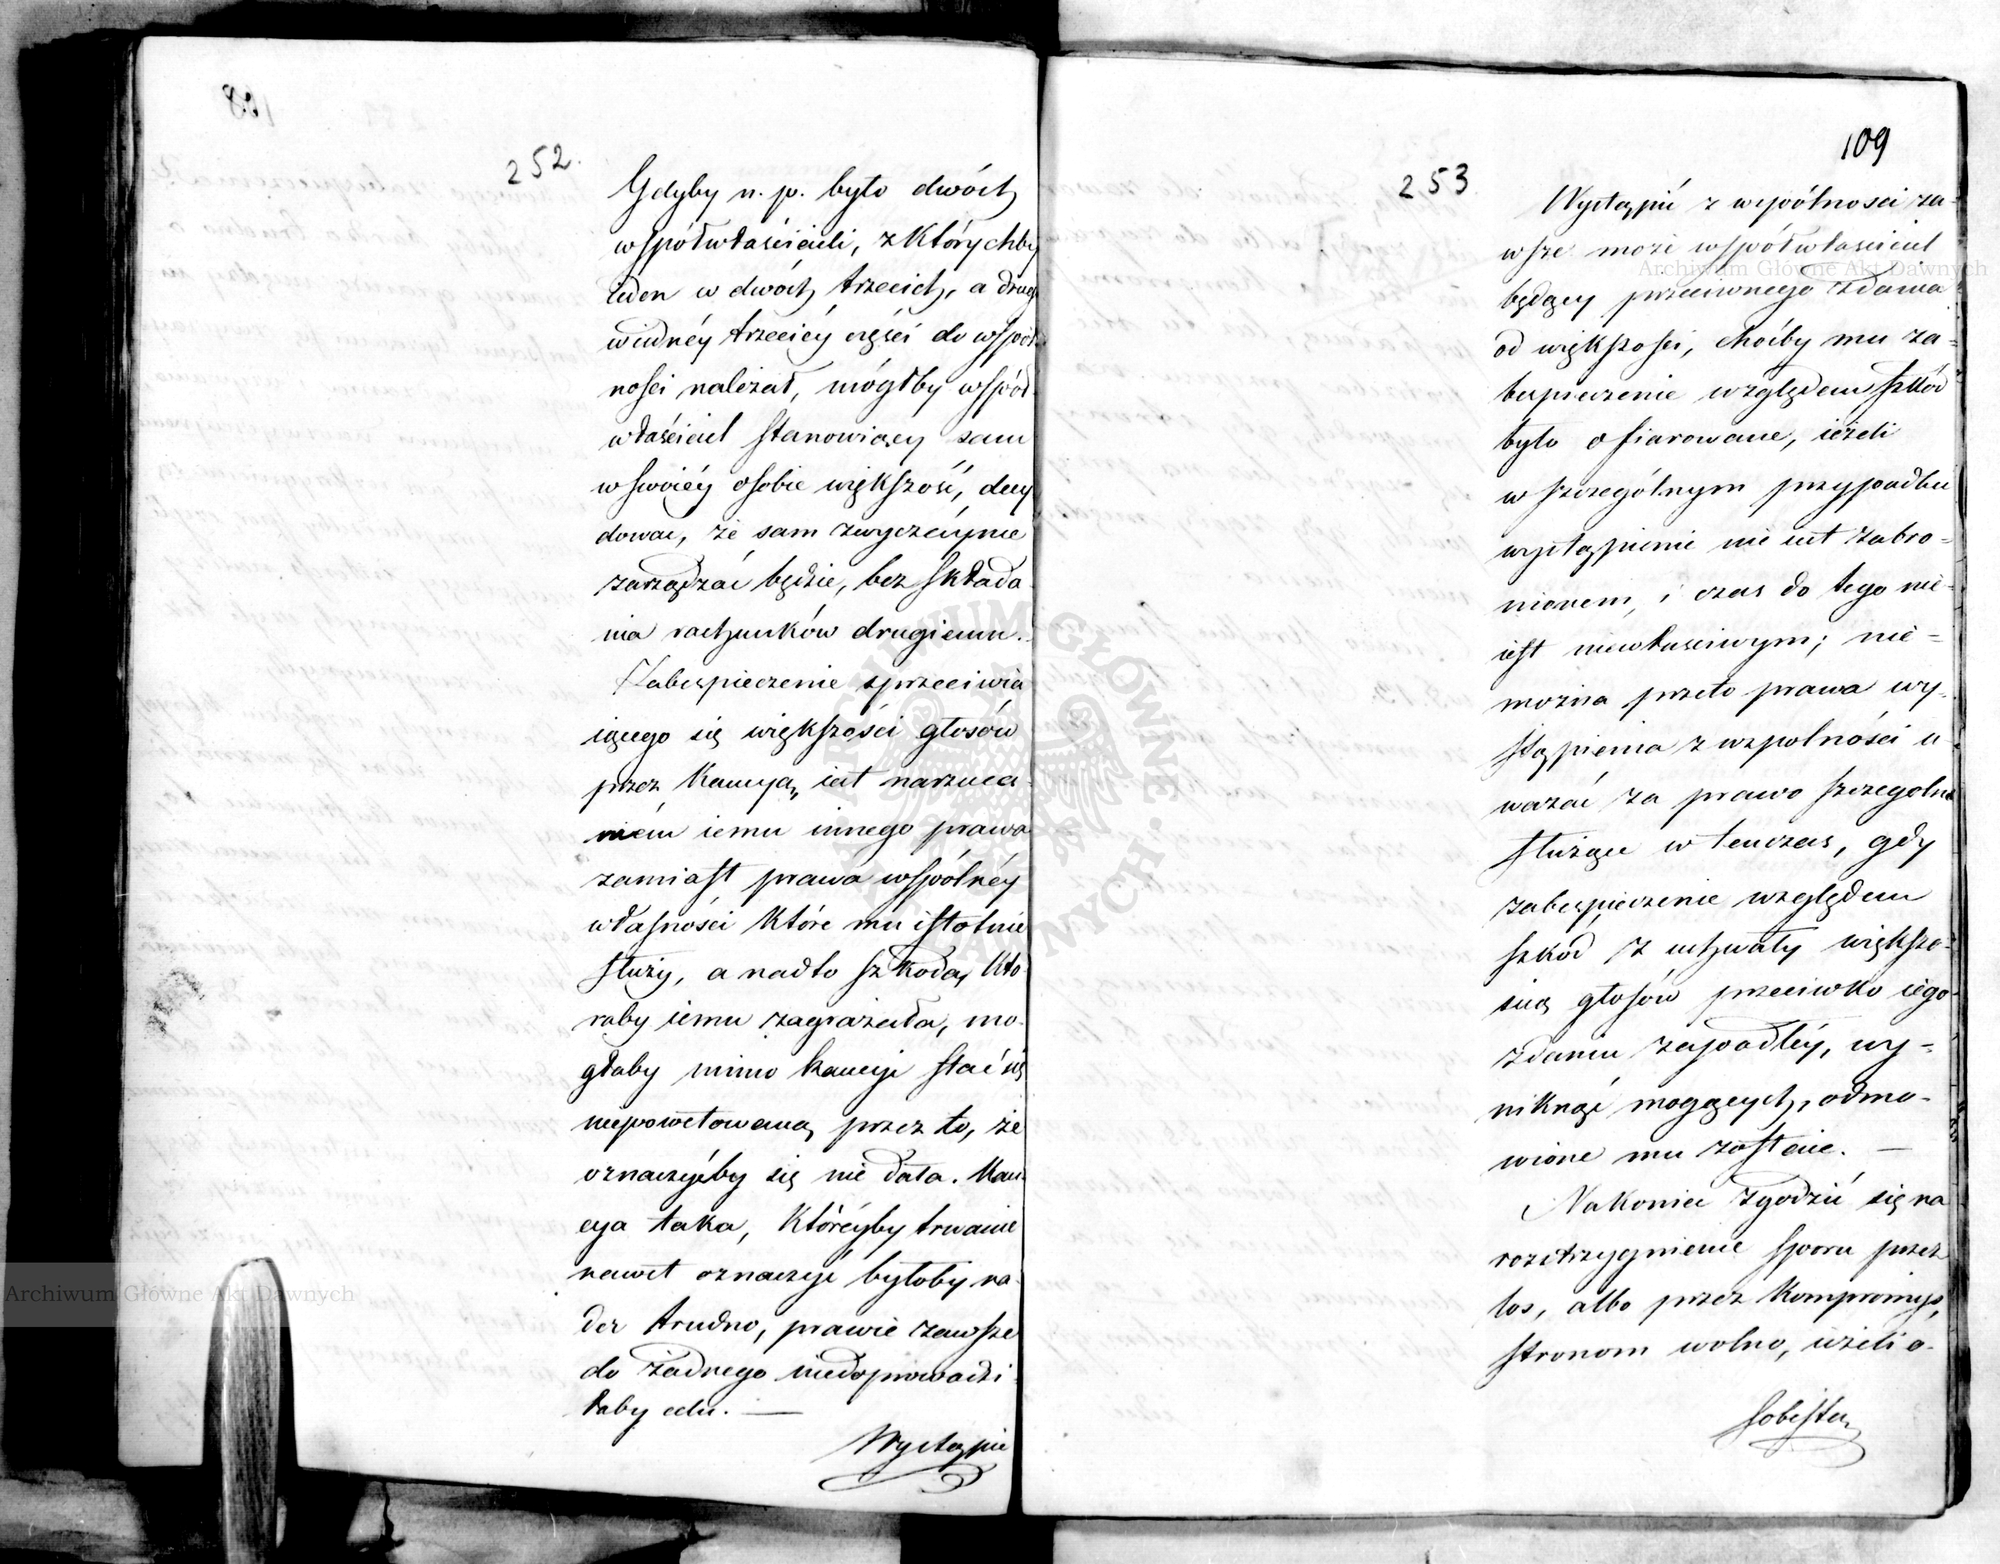 108
252.
Gdyby n. p. było dwóch
współwłaścicieli, z którychby
ieden w dwóch trzecich, a drugi
wiednéy trzeciéy części do wspól
ności należał, mógłby współ
właściciel stanowiący sam
w swoiéy osobie większość, decy
dować, że sam zwyczaynie
zarządzać będzie, bez składa
nia rachunków drugiemu.
Zabespieczenie sprzeciwia
iącego się większości głosów
przez kaucyą, iest narzuca
niem iemu innego prawa
zamiast prawa wspólnéy
własności które mu istotnie
służy, a nadto szkoda, któ
raby iemu zagrażała, mo
głaby mimo kaucyi stać się
niepowetowaną przez to, że
oznaczyćby się nie dała. Kau
cya taka, któréyby trwanie
nawet oznaczyć byłoby na
der trudno, prawie zawsze
do żadnego niedoprowadzi
łaby celu. —
Wystąpić
109
253
Wystąpić z wspólności za-
wsze może współwłaściciel
będący przeciwnego zdania
od większości, choćby mu za-
bespieczenie względem szkód
było ofiarowane, ieżeli
w szczególnym przypadku
wystąpienie nie iest zabro-
nionem, i czas do tego nie-
iest niewłaściwym; nie-
można przeto prawa wy-
stąpienia z wspolności u-
ważać za prawo szczegolne
służące w tenczas, gdy
zabespieczenie względem
szkód z uchwały większo-
ścią głosów przeciwko iego
zdaniu zapadłéy, wy-
niknąć mogących, odmó-
wione mu zostaie. —
Nakoniec zgodzić się na
rozstrzygnienie sporu przez
los, albo przez kompromiss,
stronom wolno, ieżeli o-
sobiste
Archiwum Główne Akt Dawnych
Archiwum Główne Akt Dawnych
ARCHIWUM GŁÓWNE AKT DAWNYCH